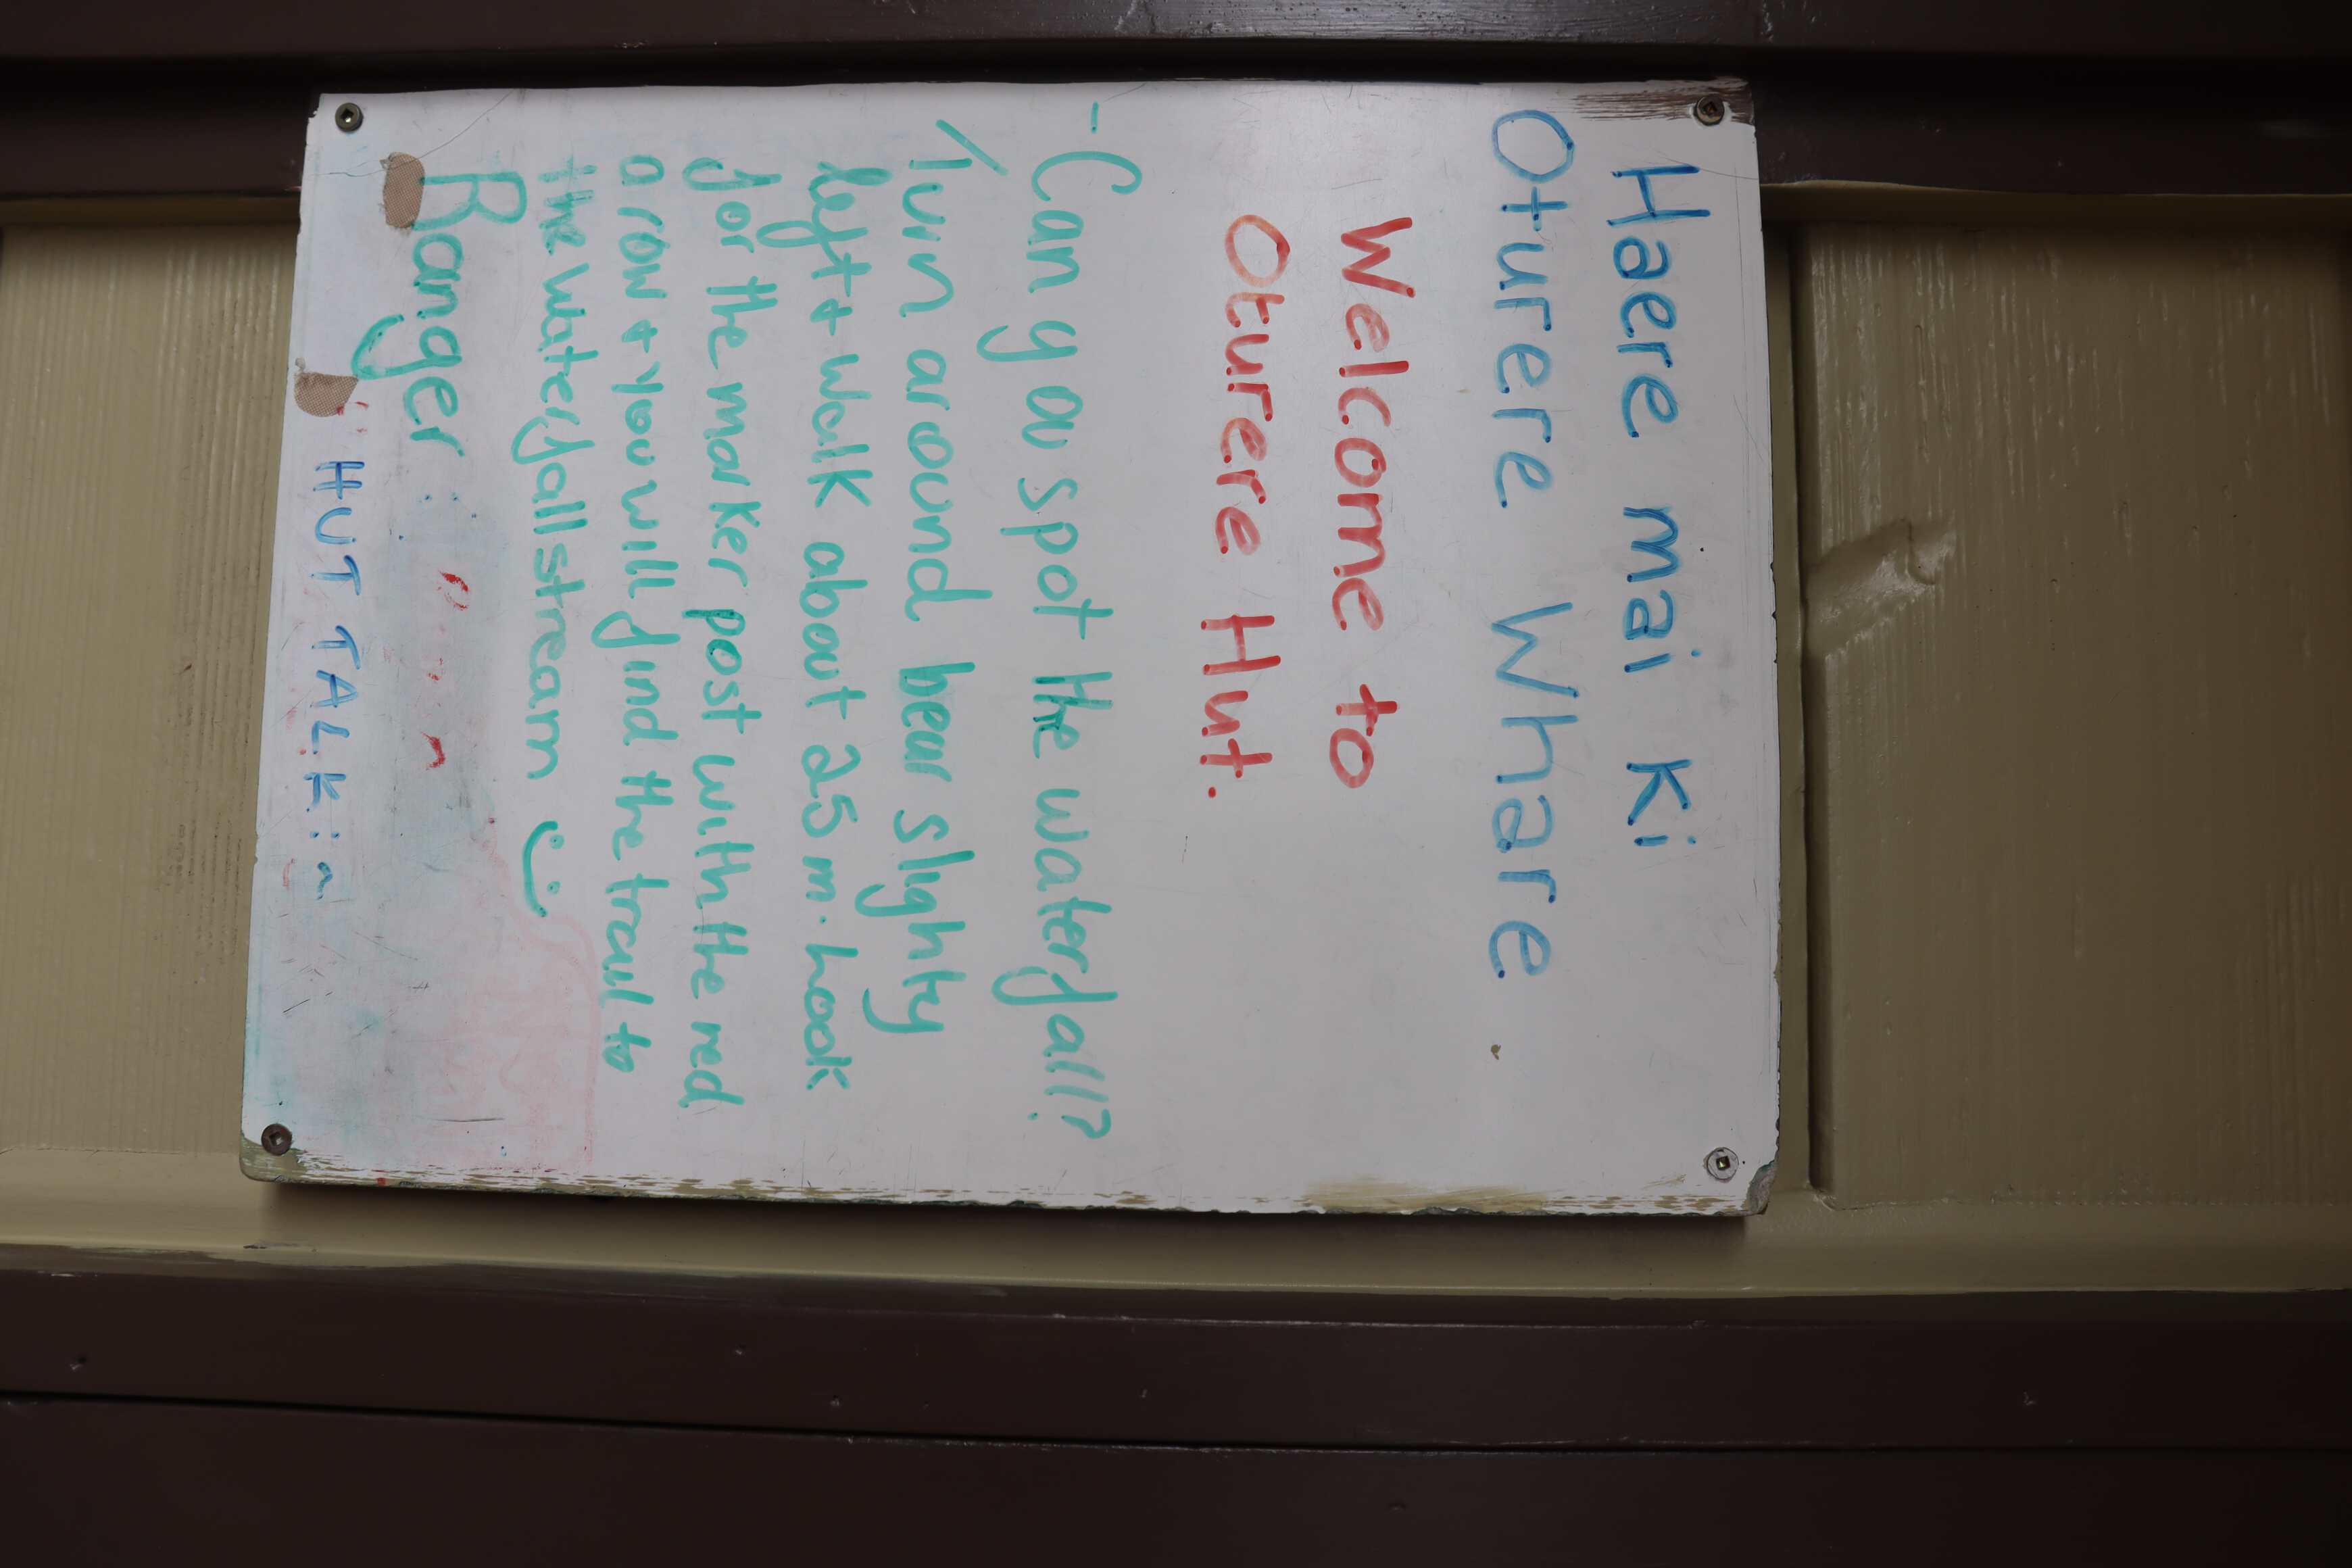 Haere mai Ki
Oturere Whare
Welcome to
Oturere Hut.
- Can you spot the waterfall?
Turn around bear slighty
left & walk about 25 m. Look
for the marker post with the red
arow & you will find the trail to
the waterfall stream
Ranger :
HUT TALK: